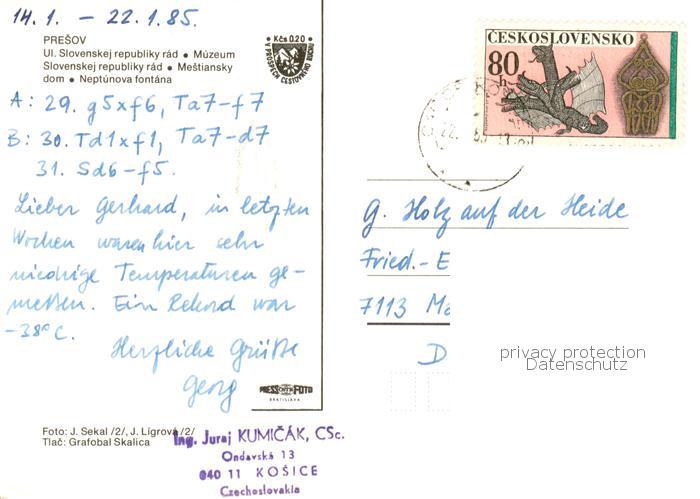 14.1. – 22.1.85.
PREŠOV
Ul. Slovenskej republiky rád • Múzeum
Slovenskej republiky rád • Meštiansky
dom • Neptúnova fontána
Kčs 0.20
V PROSPECH CESTOVNÉHO RUCHU
ČESKOSLOVENSKO
80 h
A: 29. g5xf6, Ta7-f7
B: 30. Td1xf1, Ta7-d7
31. Sd6-f5.
Lieber Gerhard, in letzten
Wochen waren hier sehr
niedrige Temperaturen ge-
messen. Ein Rekord war
-38°C.
Herzliche Grüße
Georg
G. Holz auf der Heide
Fried.- E
7113 Ma
D
privacy protection
Datenschutz
PRESSFOTO
BRATISLAVA
Foto: J. Sekal /2/, J. Lígrová /2/
Tlač: Grafobal Skalica
Ing. Juraj KUMIČÁK, CSc.
Ondavská 13
040 11 KOŠICE
Czechoslovakia